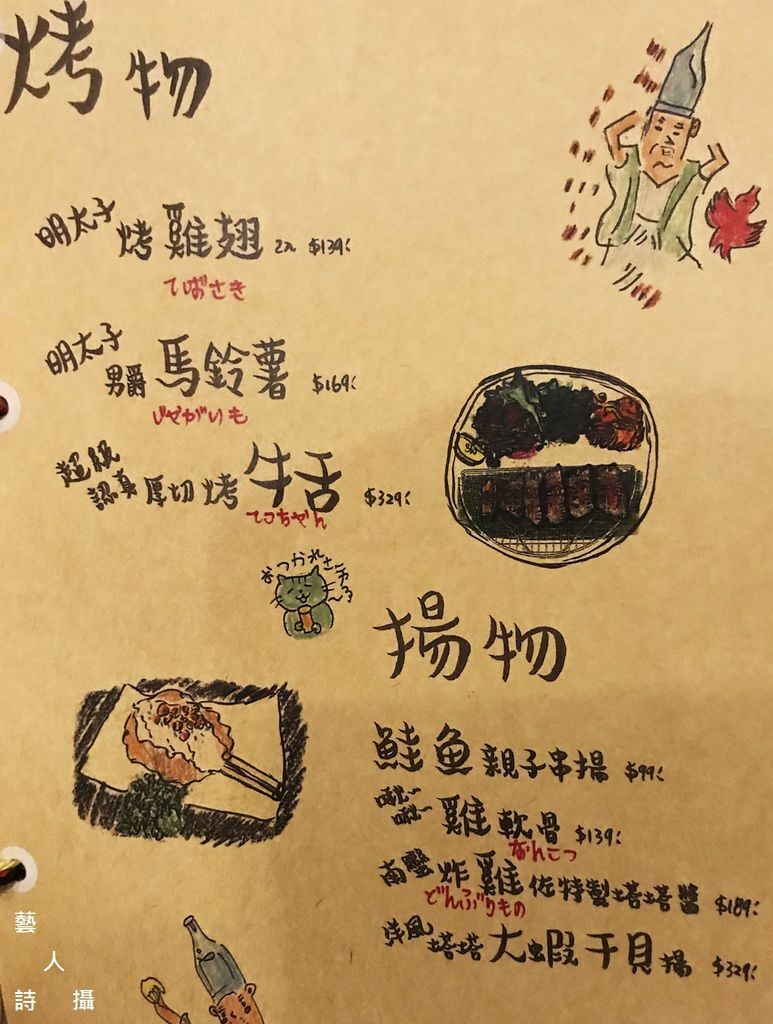 烤物
明太子 烤雞翅 2入 $139.
てばさき
明太子 男爵 馬鈴薯 $169.
じゃがいも
超級 認真 厚切烤 牛舌 $329.
おつかれさま〜
揚物
鮭魚親子串揚 $99.
雞軟骨 $139.
なんこつ
南蠻炸雞佐特製塔塔醬 $189.
どんぶりもの
塔塔大蝦干貝揚 $329.
藝
人
詩 攝